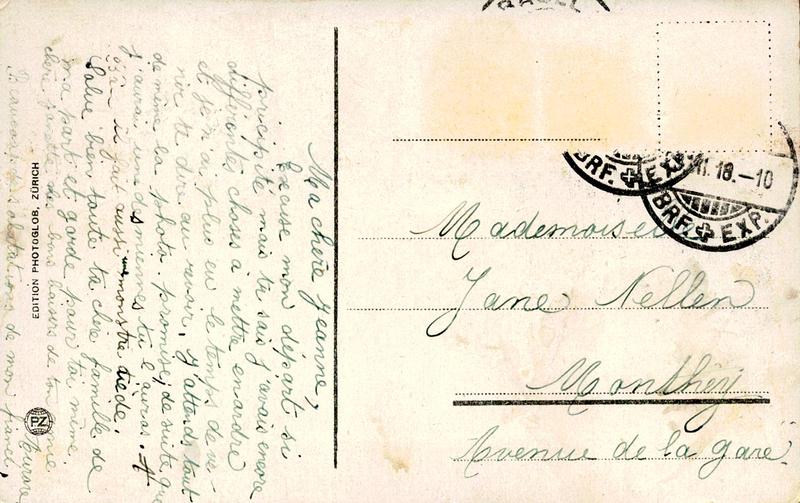 Ma chère Jeanne,
Excuse mon départ si
précipité mais tu sais j'avais encore
différentes choses à mettre en ordre
et j'en a plus eu le temps de ve-
nir te dire au revoir. J'attends tout
de même la photo promise, de suite que
j'aurai une des miennes tu l'auras. A
il fait aussi monstre tiède.
Salue bien toute ta chère famille de
ma part et garde pour toi même
chère de bons baisers de ton amie
de mon
EDITION PHOTOGLOB, ZÜRICH
PZ
BASEL
BRF. EXP.
18.-10
BRF. EXP.
Mademoiselle
Jane Nellen
Monthey
Avenue de la gare